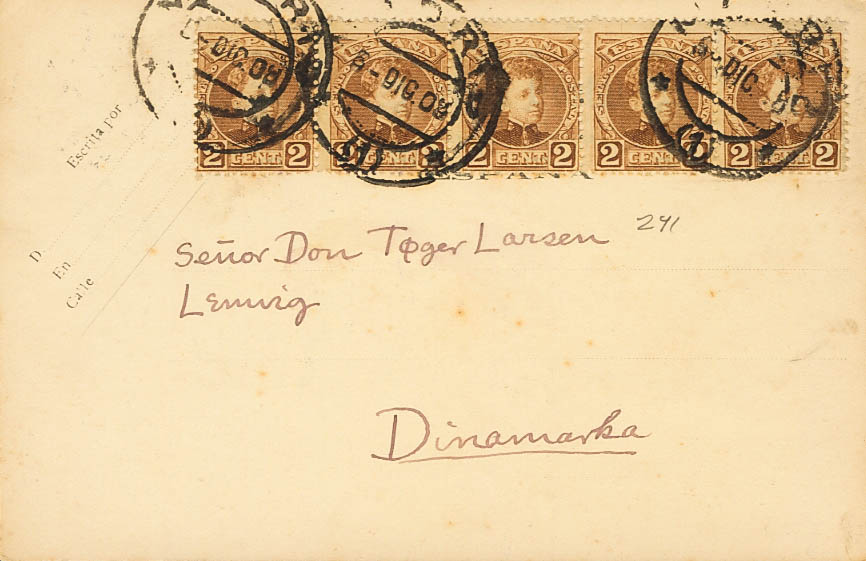 ESPAÑA ESPAÑA ESPAÑA ESPAÑA
DIC. 08
2 CENT 2 CENT 2 CENT 2 2 CENT 2 CENT 2
Escrita por
D
En
Calle
Señor Don Tøger Larsen 241
Lemvig
Dinamarka